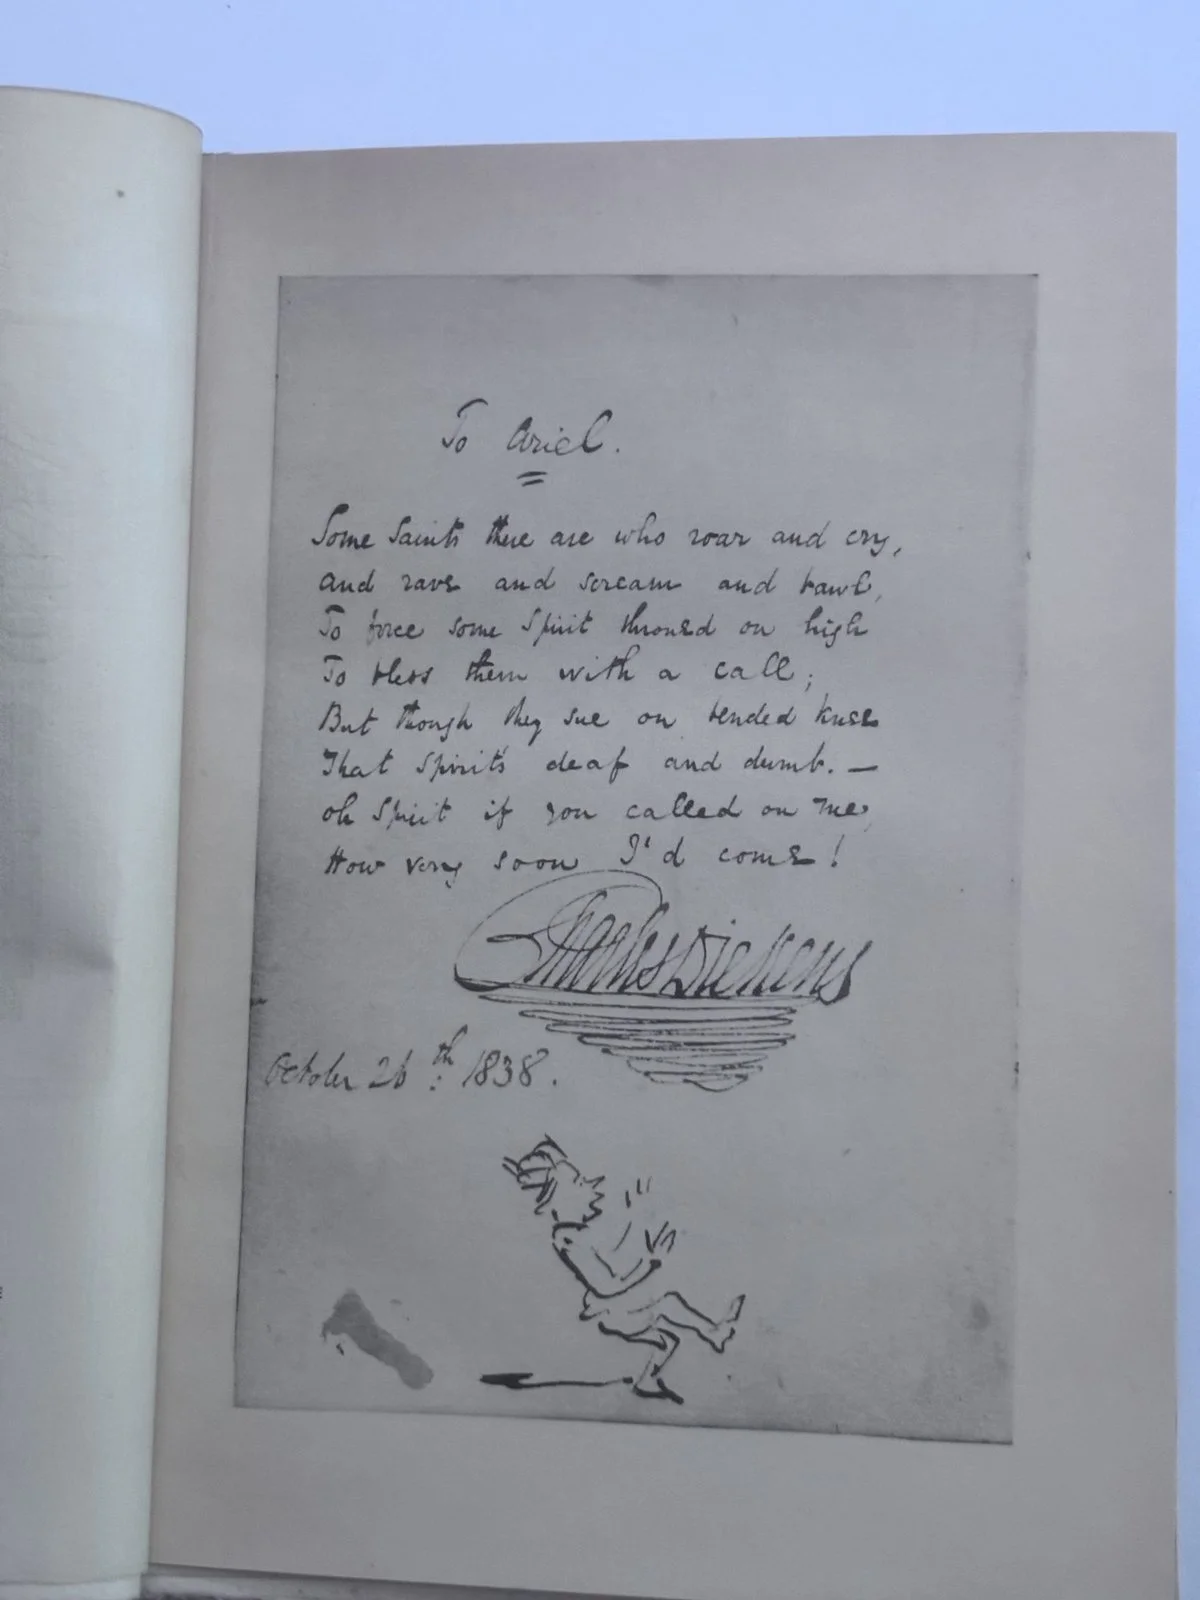 To Ariel.
Some Saints there are who roar and cry,
and rave and scream and bawl,
To force some Spirit throned on high
To bless them with a call;
But though they sue on bended knee
That Spirit's deaf and dumb. —
oh Spirit if you called on me,
How very soon I'd come!
Charles Dickens
October 26th 1838.